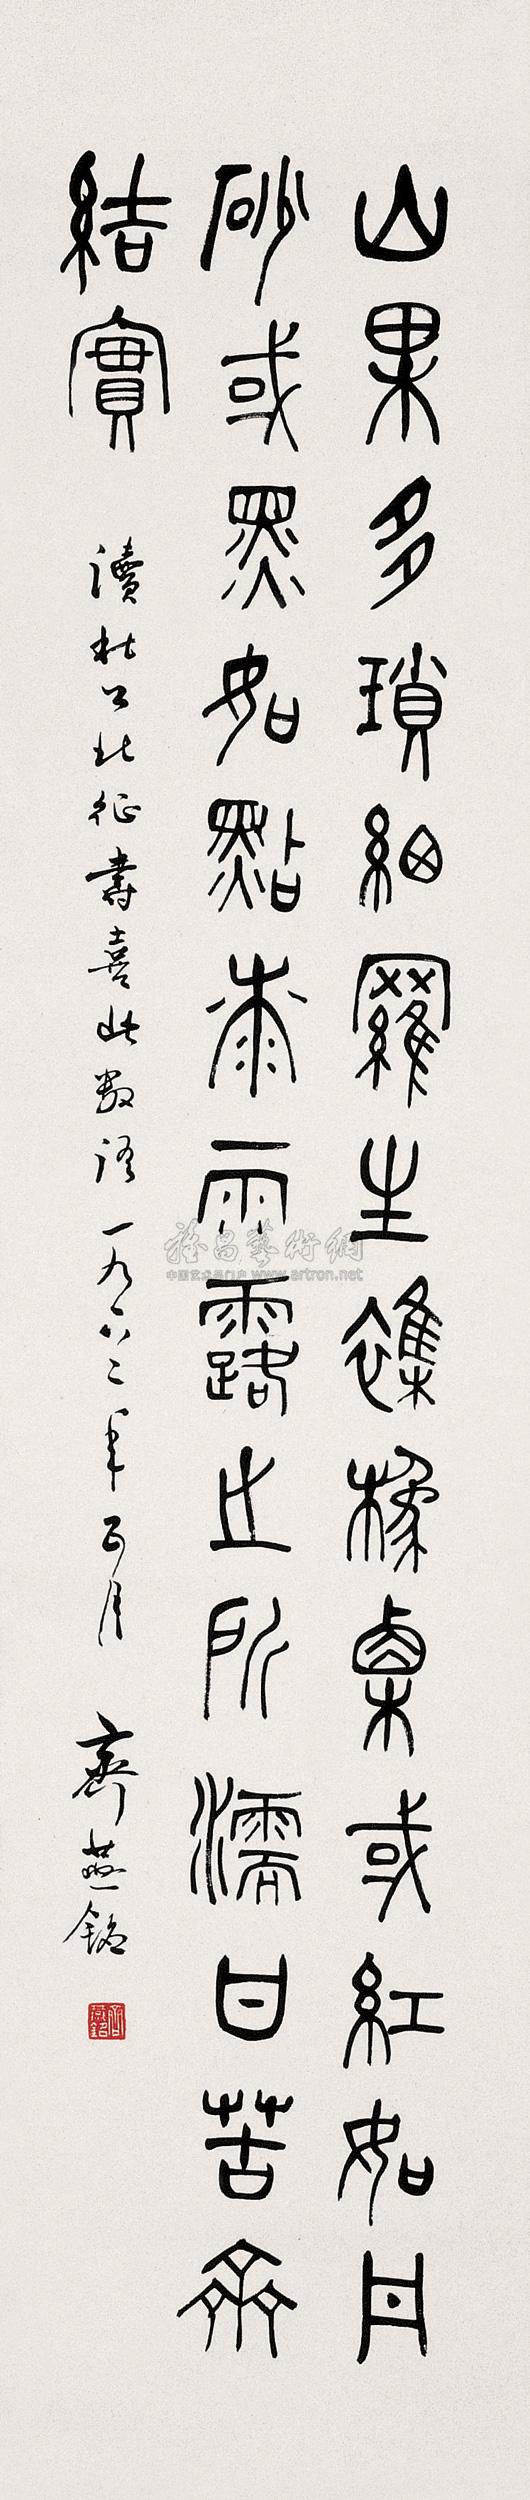 山果多瑣細羅生雜橡栗或紅如丹
砂或黑如點桼雨露之所濡甘苦齊
結實
讀杜公北征書喜此數語一九六二年五月
齊燕銘
齊燕銘
雅昌藝術網
中国艺术品门户 www.artron.net